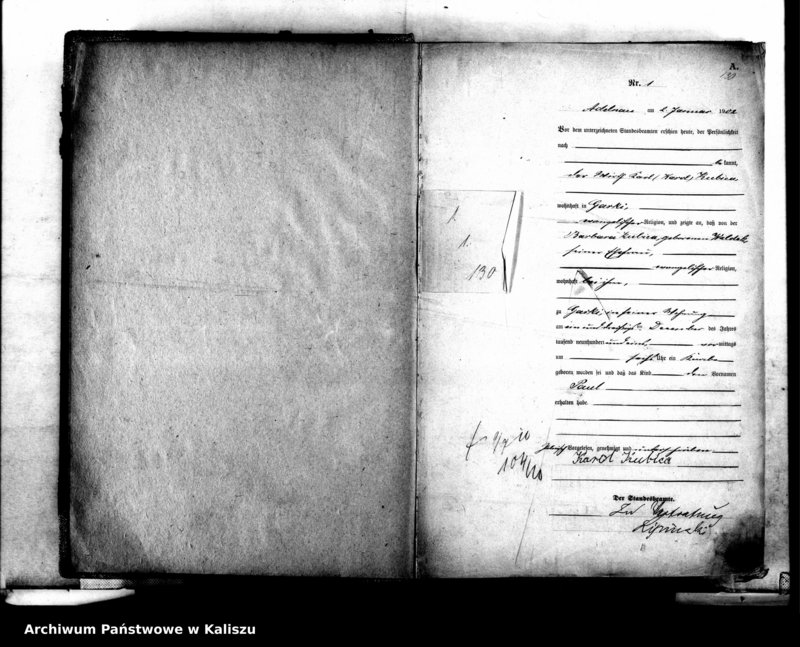 A.
130
Nr. 1
Adelnau am 2. Januar 1902
Vor dem unterzeichneten Standesbeamten erschien heute, der Persönlichkeit
nach
be kannt,
der Wirth Karl (Karol) Kubica
wohnhaft in Garki,
evangelischer Religion, und zeigte an, daß von der
Barbara Kubica, geborenen
seiner Ehefrau,
evangelischer Religion,
wohnhaft bei ihm,
zu Garki, in seiner Wohnung
am ein und dreißigsten Dezember des Jahres
tausend neunhundert und eins, vormittags
um sechs Uhr ein Knabe
geboren worden sei und daß das Kind den Vornamen
Paul
erhalten habe.
Vorgelesen, genehmigt und unterschrieben
Karol Kubica
Der Standesbeamte.
In Vertretung
1.
1.
130
Archiwum Państwowe w Kaliszu